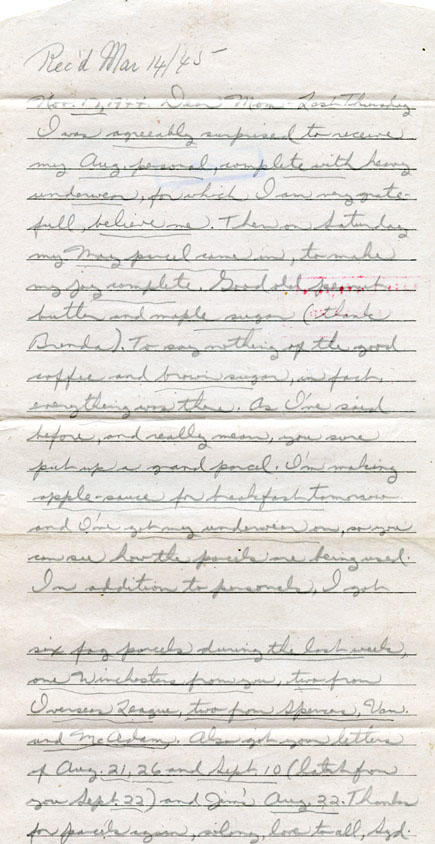 Rec'd Mar 14/45
Nov. 17, 1944. Dear Mom - Last Thursday
I was agreeably surprised to receive
my Aug. personal, complete with heavy
underwear, for which I am very grate-
full, believe me. Then on Saturday
my May parcel came in, to make
my joy complete. Good old peanut
butter and maple sugar (thank
Brenda). To say nothing of the good
coffee and brown sugar, in fact,
everything was there. As I've said
before, and really mean, you sure
put up a grand parcel. I'm making
apple-sauce for breakfast tomorrow
and I've got my underwear on, so you
can see how the parcels are being used.
In addition to personals, I got
six fag parcels during the last week,
one Winchesters from you, two from
Overseas League, two from Spencers, Van.
and McAdam. Also got your letters
of Aug. 21, 26 and Sept. 10 (latest from
you Sept. 22) and Jim's Aug. 22. Thanks
for parcels again, so long, love to all, Syd.